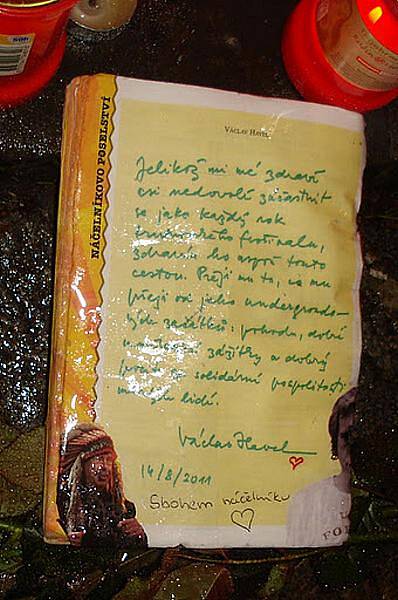 NÁČELNÍKOVO POSELSTVÍ
VÁCLAV HAVEL
Jelikož mi mé zdraví
asi nedovolí zúčastnit
se jako každý rok
trutnovského festivalu,
zdravím ho aspoň touto
cestou. Přeji mu to, co mu
přeji od jeho undergroundo-
vých začátků: pohodu, dobré
zážitky a dobrý
pocit ze solidární pospolitosti
lidí.
Václav Havel
14/8/2011
Sbohem náčelníku
FO